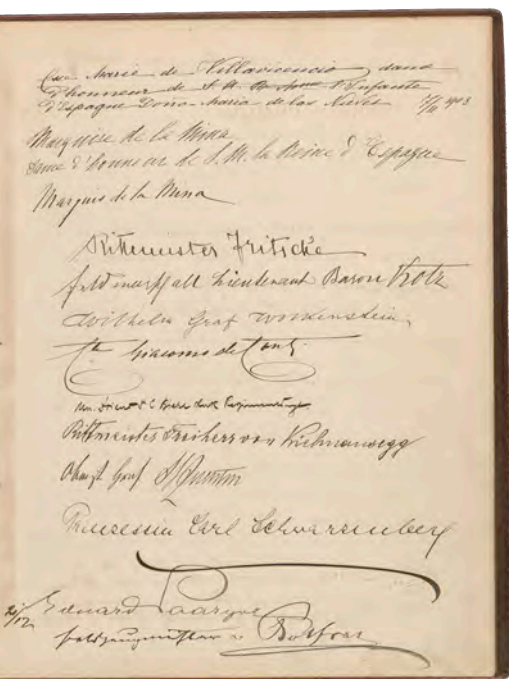 Marie de Villavicencio dame
d'honneur de S. A. R. Mme l'Infante
d'Espagne Dona Maria de las Nieves 1903
Marquise de la Mina
Dame d'honneur de S. M. la Reine d'Espagne
Marquis de la Mina
Rittmeister Fritsche
Feldmarschall Lieutenant Baron Kotz
Wilhelm Graf Wolkenstein
Giacomo de
Rittmeister Freiherr von Kielmansegg
Oberst Graf St Quentin
Prinzessin Carl Schwarzenberg
Eduard
Feldzeugmeister v